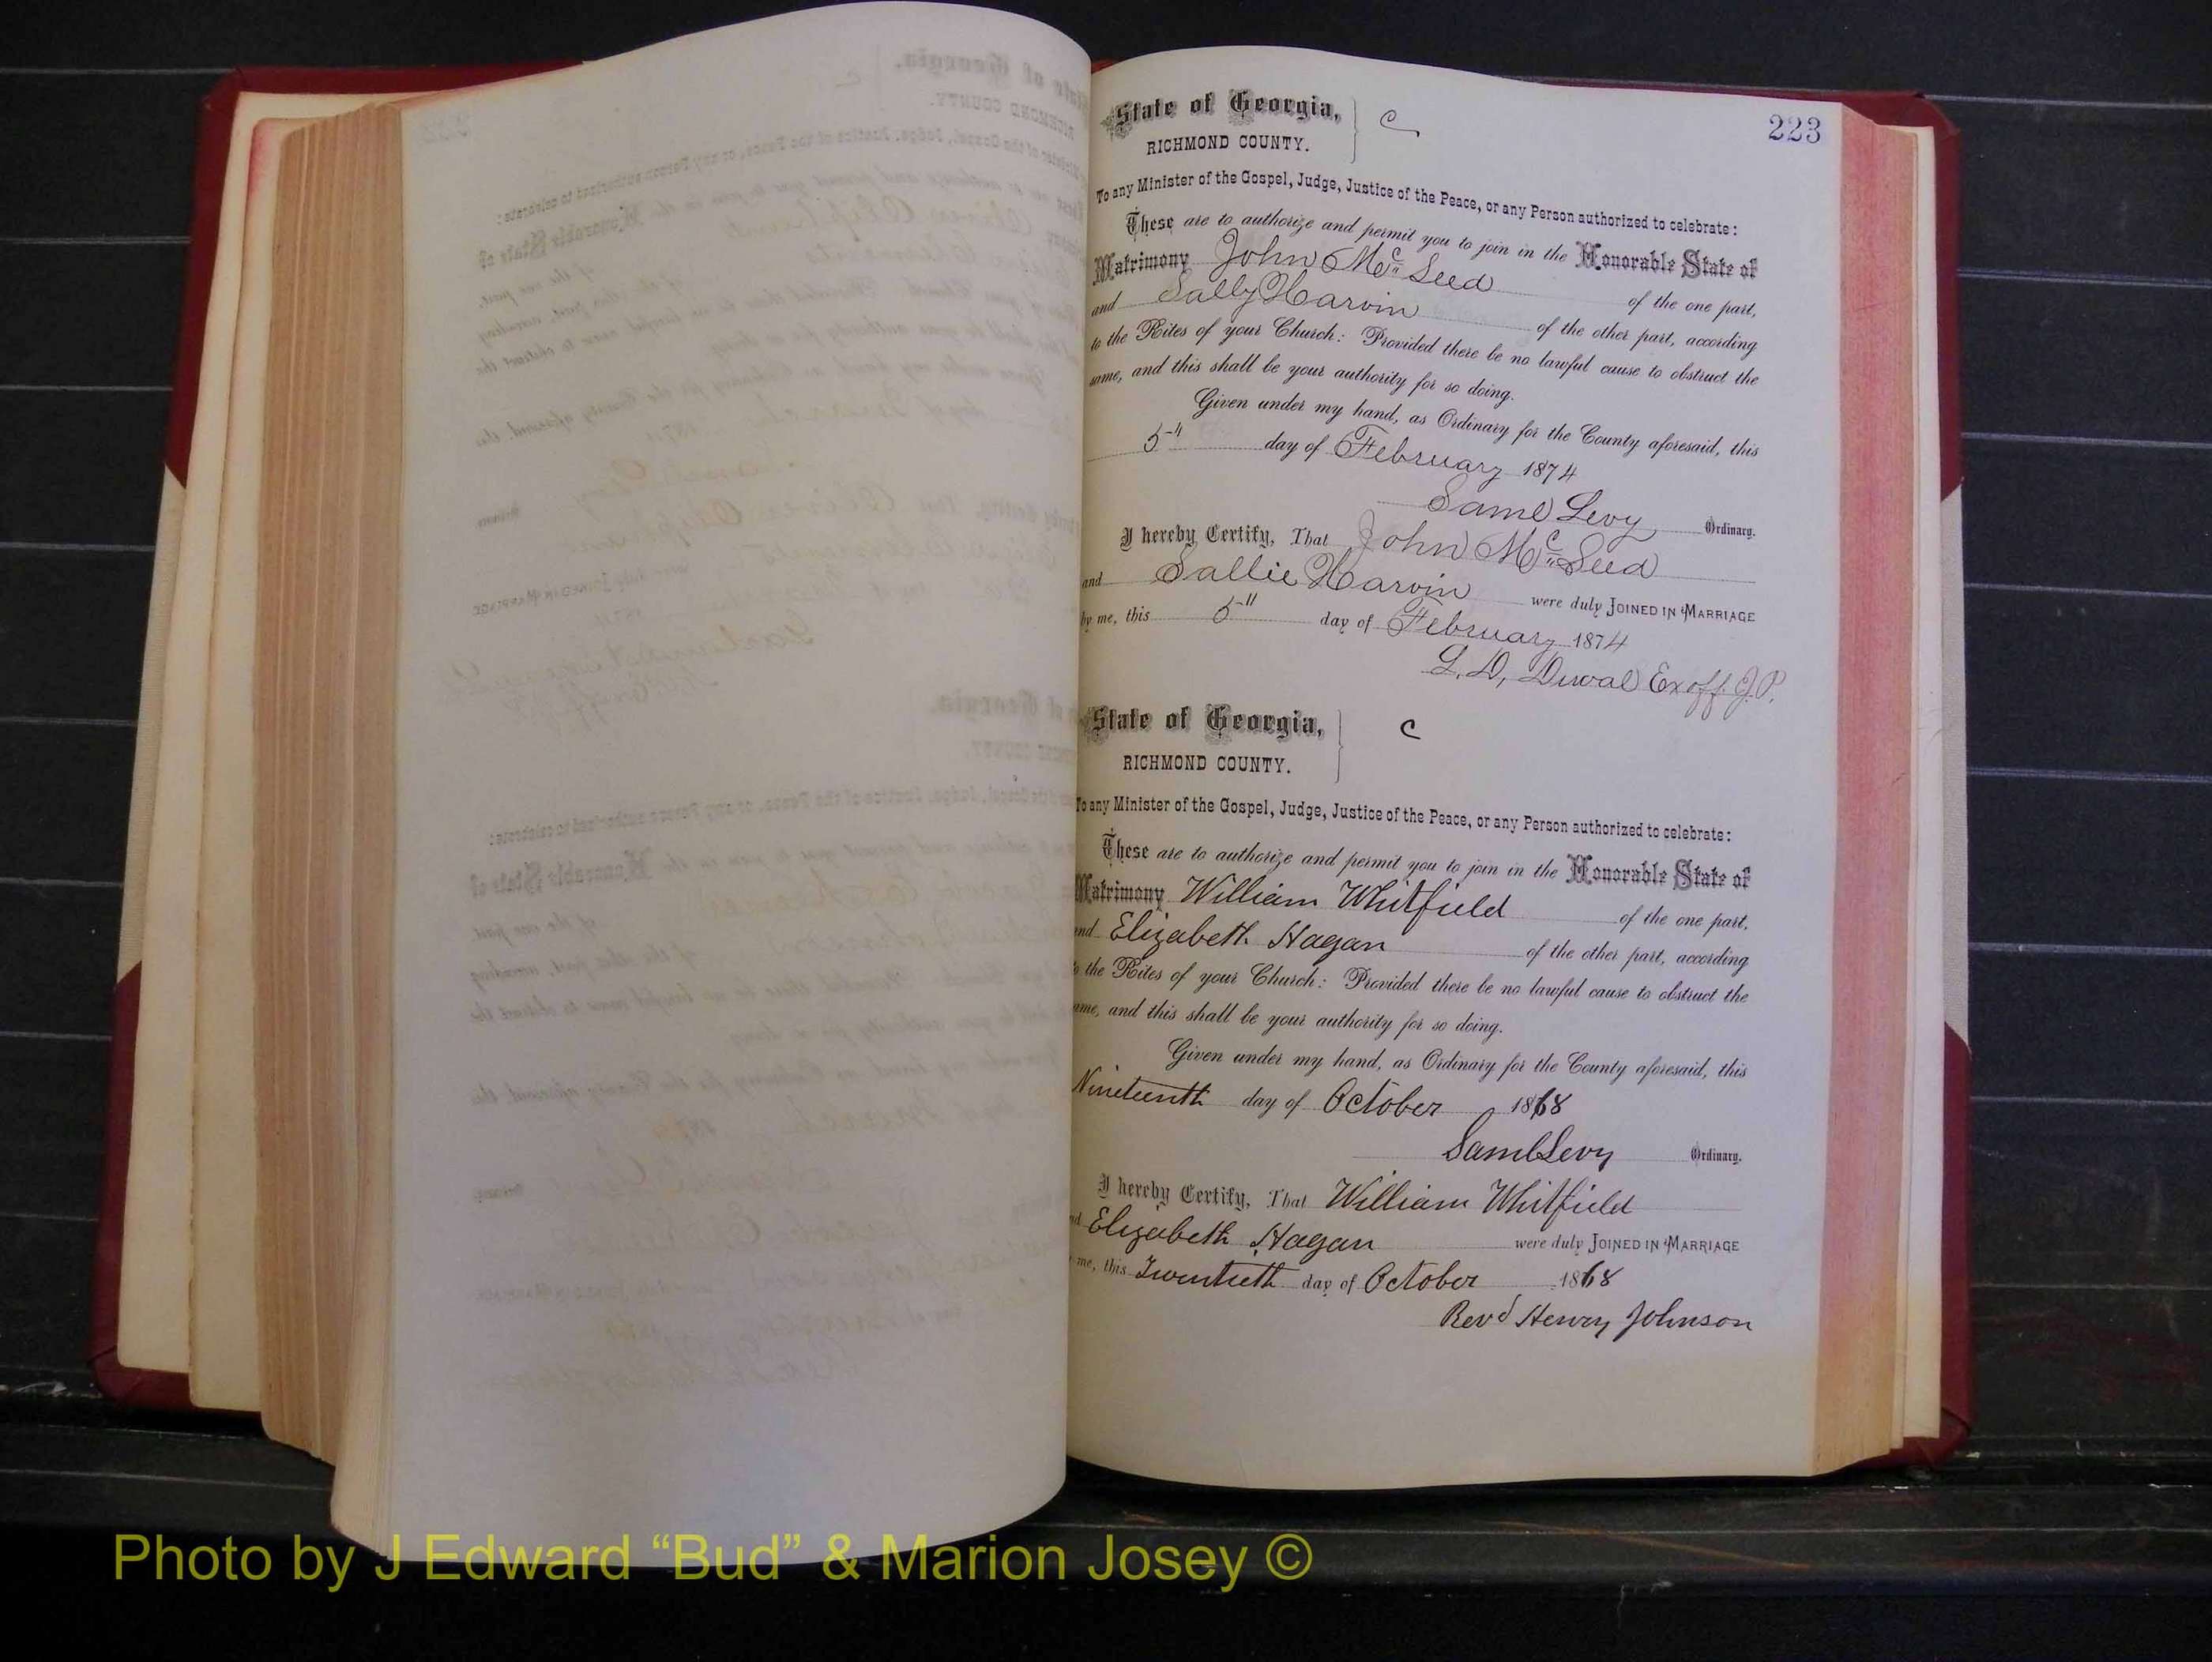 223
State of Georgia,
RICHMOND COUNTY.
C
To any Minister of the Gospel, Judge, Justice of the Peace, or any Person authorized to celebrate:
These are to authorize and permit you to join in the Honorable State of
Matrimony John Mc Seed of the one part,
and Sally Harvin of the other part, according
to the Rites of your Church: Provided there be no lawful cause to obstruct the
same, and this shall be your authority for so doing.
Given under my hand, as Ordinary for the County aforesaid, this
5" day of February 1874
Saml Levy Ordinary.
I hereby Certify, That John Mc Seed
and Sallie Harvin were duly JOINED IN MARRIAGE
by me, this 5" day of February 1874
L. D. Duval Ex off. J.P.
State of Georgia,
RICHMOND COUNTY.
C
To any Minister of the Gospel, Judge, Justice of the Peace, or any Person authorized to celebrate:
These are to authorize and permit you to join in the Honorable State of
Matrimony William Whitfield of the one part,
and Elizabeth Hagan of the other part, according
to the Rites of your Church: Provided there be no lawful cause to obstruct the
ame, and this shall be your authority for so doing.
Given under my hand, as Ordinary for the County aforesaid, this
Nineteenth day of October 1868
Saml Levy Ordinary.
I hereby Certify, That William Whitfield
nd Elizabeth Hagan were duly JOINED IN MARRIAGE
me, this Twentieth day of October 1868
Revd Henry Johnson
Photo by J Edward “Bud” & Marion Josey ©